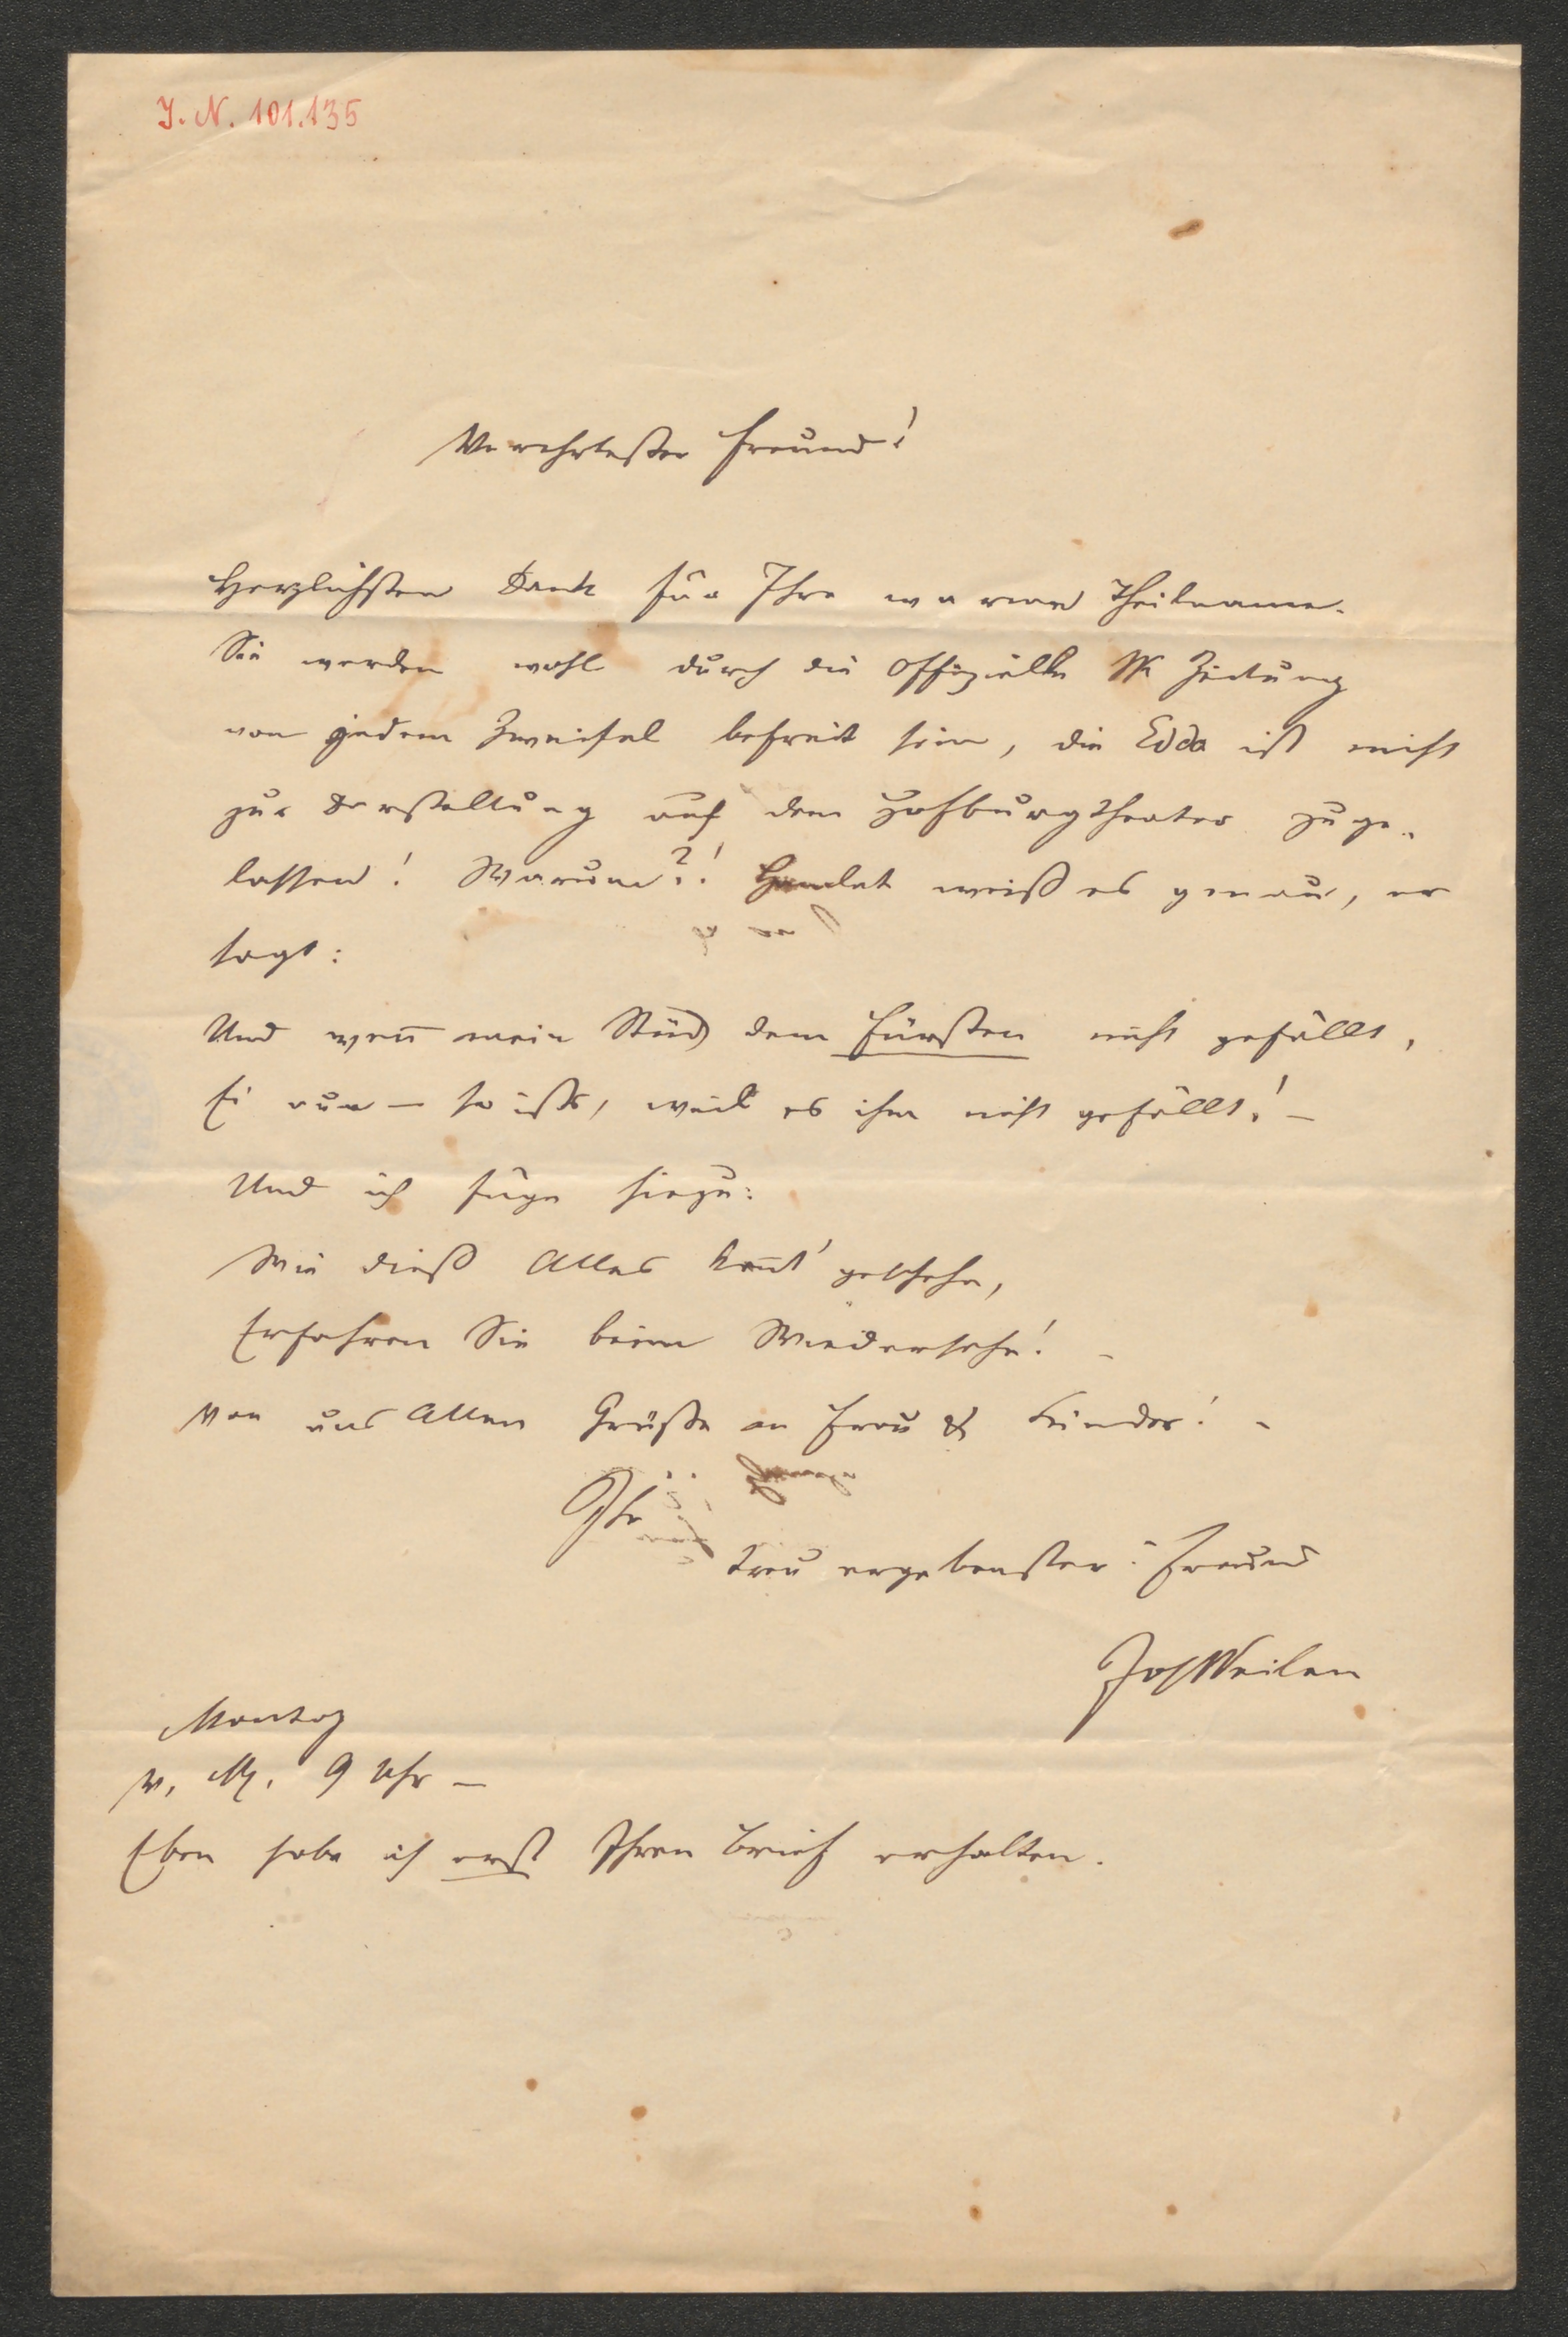 J. N. 101.135
Verehrtester Freund!
Herzlichsten Dank für Ihre warme Theilname.
Sie werden wohl durch die offizielle W Zeitung
von jedem Zweifel befreit sein, die Edda ist nicht
zur Darstellung auf dem Hofburgtheater zuge-
lassen! Warum?! Hamlet weiß es genau, er
sagt:
Und weñ mein Stück dem Fürsten nicht gefällt,
Ei nun – so ists, weil es ihm nicht gefällt! –
Und ich füge hinzu:
Wie dieß Alles koñt' geschehn,
Erfahren Sie beim Wiedersehn! –
Von uns Allen Grüße an Frau & Kinder! –
Ihr
treu ergebenster Freund
Jos Weilen
Montag
V. M. 9 Uhr –
Eben habe ich erst Ihren Brief erhalten.